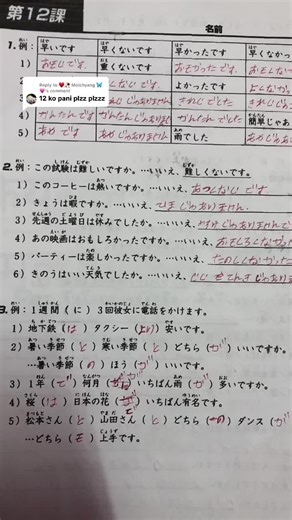 第12課
名前
1. 例: 早いです 早くないです 早かったです 早くなかっ
1) おもいです 重くないです おもかったです
Reply to Monchyang
's comment
12 ko pani plzz plzzz
2) よかったです
3) きれいでした
4) かんたんです かんたんじゃありません かんたんでした 簡単じゃあ
5) あめです あめじゃありません 雨でした
2. 例:この試験は難しいですか。…いいえ、難しくないです。
1) このコーヒーは熱いですか。…いいえ、あつくないです
2) きょうは暇ですか。…いいえ、ひまじゃありません
3) 先週の土曜日は休みでしたか。…いいえ、
4) あの映画はおもしろかったですか。…いいえ、おもしろくなかった
5) パーティーは楽しかったですか。…いいえ、たのしくなかった
6) きのうはいい天気でしたか。…いいえ、
3. 例:1週間(に)3回彼女に電話をかけます。
1) 地下鉄(は)タクシー(より)安いです。
2) 暑い季節(と)寒い季節(と)どちら(が)いいですか。
…暑い季節(の)ほう(が)いいです。
3) 1年(で)何月(が)いちばん雨(が)多いですか。
4) 桜(は)日本の花(で)いちばん有名です。
5) 松本さん(と)山田さん(と)どちら(の)ダンス(が
…どちら(も)上手です。